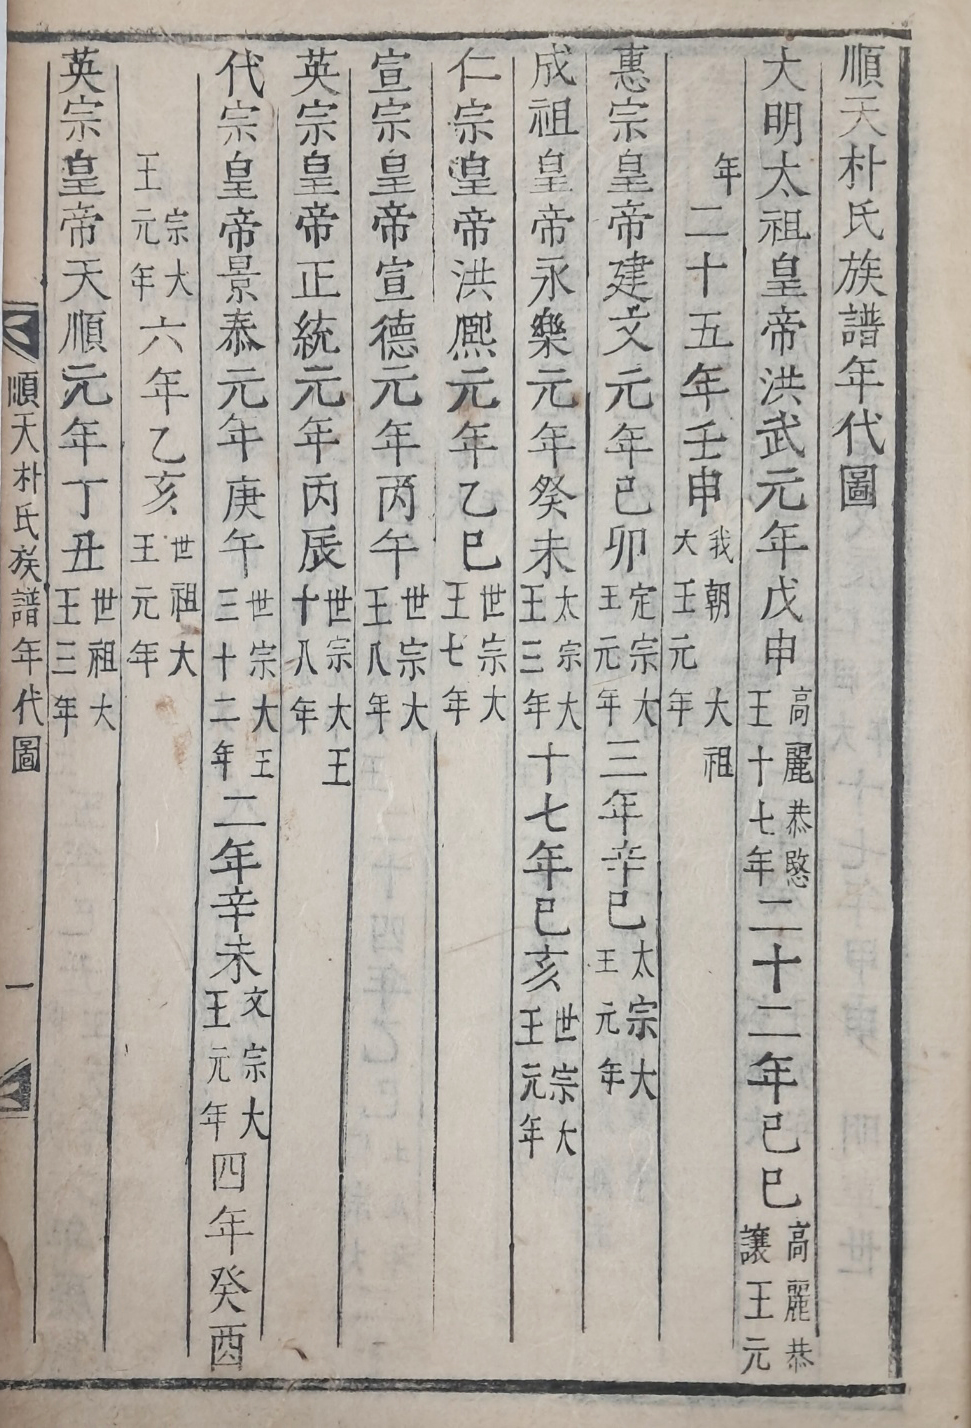 順天朴氏族譜年代圖
大明太祖皇帝洪武元年戊申高麗恭愍王十七年二十二年己巳高麗恭讓王元
年二十五年壬申我朝大祖大王元年
惠宗皇帝建文元年己卯定宗大王元年三年辛巳太宗大王元年
成祖皇帝永樂元年癸未太宗大王三年十七年己亥世宗大王元年
仁宗皇帝洪熙元年乙巳世宗大王七年
宣宗皇帝宣德元年丙午世宗大王八年
英宗皇帝正統元年丙辰世宗大王十八年
代宗皇帝景泰元年庚午世宗大王三十二年二年辛未文宗大王元年四年癸酉
宗大王元年六年乙亥世祖大王元年
英宗皇帝天順元年丁丑世祖大王三年
順天朴氏族譜年代圖 一